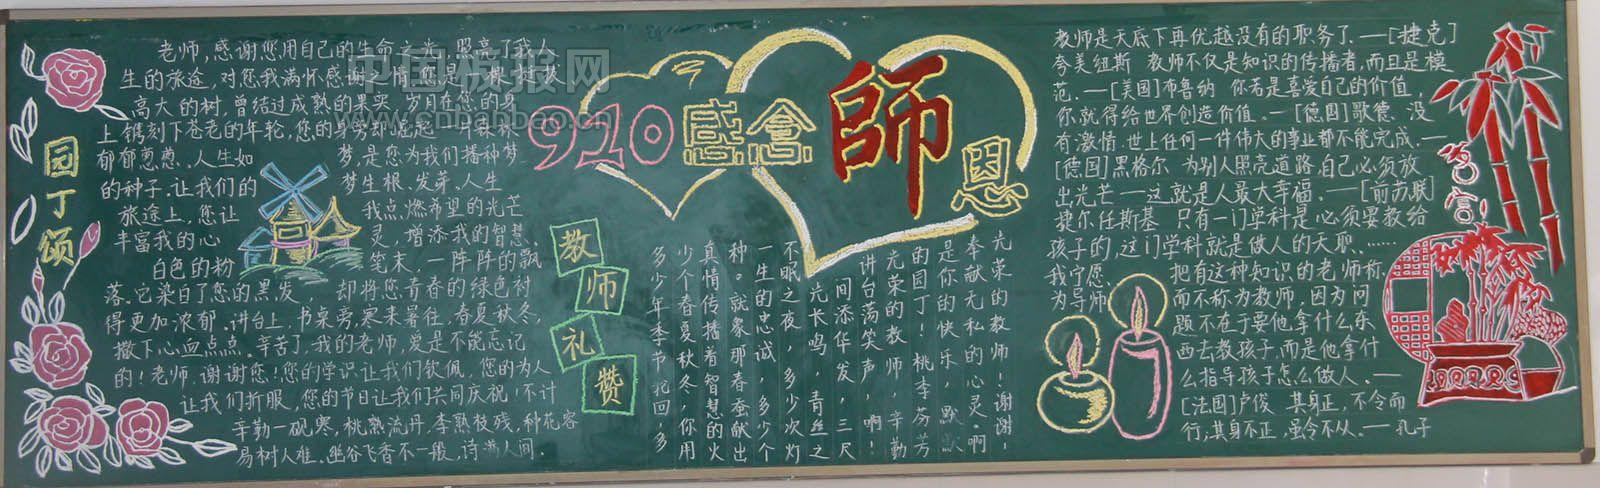 园丁颂
老师,感谢您用自己的生命之光,照亮了我人
生的旅途,对您我满怀感谢之情.您是一棵挺拔
高大的树,曾结过成熟的果实,岁月在您的身
上镌刻下苍老的年轮,您的身旁却崛起一片森林
郁郁葱葱、人生如梦,是您为我们播种梦
的种子.让我们的梦生根、发芽、人生
旅途上,您让我点燃希望的光芒
丰富我的心灵,增添我的智慧、
白色的粉笔末,一阵阵的飘
落.它染白了您的黑发,却将您青春的绿色衬
得更加浓郁.讲台上,书桌旁,寒来暑往,春夏秋冬,
撒下心血点点。辛苦了,我的老师,爱是不能忘记
的!老师.谢谢您!您的学识让我们钦佩,您的为人
让我们折服,您的节日让我们共同庆祝!不计
辛勤一砚寒,桃熟流丹,李熟枝残,种花容
易树人难。幽谷飞香不一般,诗满人间.
中国板报网
www.cnbanbao.cn
910感念師恩
教师礼赞
光荣的教师!谢谢!
奉献无私的心灵。啊
是你的快乐,默默
的园丁!桃李芬芳
光荣的教师,辛勤
讲台荡笑声,啊!
间添华发,三尺
光长鸣,青丝之
不眠之夜,多少次灯
一生的忠诚,多少个
种。就象那春蚕献出
真情传播着智慧的火
少个春夏秋冬,你用
多少年季节轮回,多
教师是天底下再优越没有的职务了.—[捷克]
夸美纽斯 教师不仅是知识的传播者,而且是模
范.—[美国]布鲁纳 你若是喜爱自己的价值,
你就得给世界创造价值。—[德国]歌德、没
有激情.世上任何一件伟大的事业都不能完成.—
[德国]黑格尔 为别人照亮道路,自己必须放
出光芒——这就是人最大幸福.—[前苏联]
捷尔任斯基 只有一门学科是必须要教给
孩子的,这门学科就是做人的天职……
我宁愿把有这种知识的老师称
为导师而不称为教师,因为问
题不在于要他拿什么东
西去教孩子.而是他拿什
么指导孩子怎么做人。—
[法国]卢俊 其身正,不令而
行;其身不正,虽令不从。—孔子